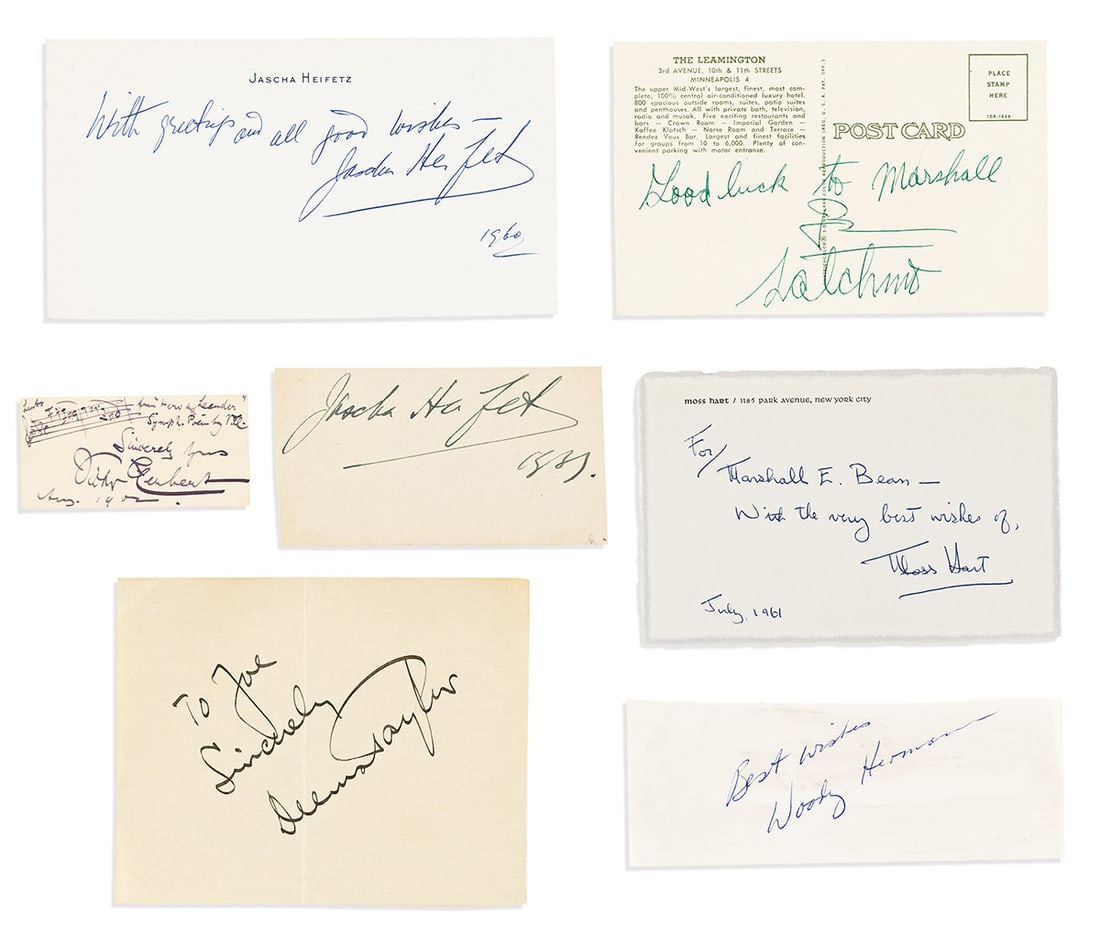 JASCHA HEIFETZ
With greetings and all good wishes —
Jascha Heifetz
1960
THE LEAMINGTON
3rd AVENUE, 10th & 11th STREETS
MINNEAPOLIS 4
The upper Mid-West's largest, finest, most com-
plete, 100% central air-conditioned luxury hotel.
800 spacious outside rooms, suites, patio suites
and penthouses. All with private bath, television,
radio and muzak. Five exciting restaurants and
bars — Crown Room — Imperial Garden —
Kaffee Klatsch — Norse Room and Terrace —
Rendez Vous Bar. Largest and finest facilities
for groups from 10 to 6,000. Plenty of con-
venient parking with motor entrance.
PLACE
STAMP
HERE
POST CARD
Good luck to Marshall
Satchmo
from "Hero & Leander"
Symph. Poem by V.H.
Sincerely yours
Victor Herbert
Aug. 1902
Jascha Heifetz
moss hart / 1185 PARK AVENUE, NEW YORK CITY
For/
Marshall E. Bean —
With the very best wishes of,
Moss Hart
July, 1961
To Joe
Sincerely
Deems Taylor
Best wishes
Woody Herman